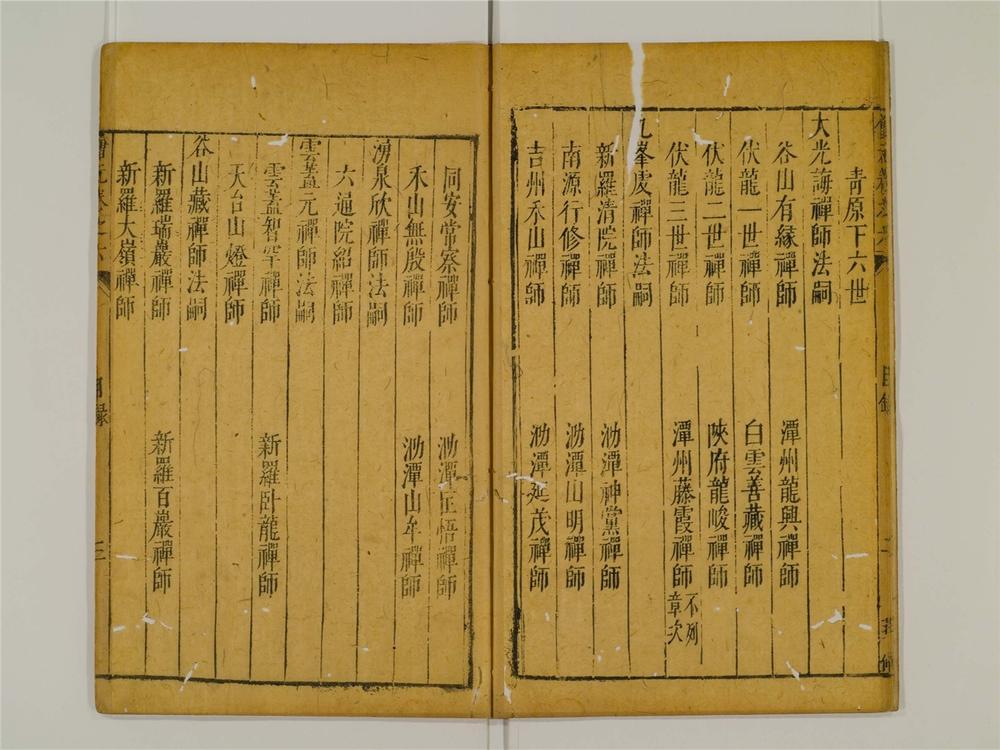 青原下六世
大光誨禪師法嗣
谷山有緣禪師 潭州龍興禪師
伏龍一世禪師 白雲善藏禪師
伏龍二世禪師 陝府龍峻禪師
伏龍三世禪師 潭州藤霞禪師 不列章次
九峯虔禪師法嗣
新羅清院禪師 泐潭神黨禪師
南源行修禪師 泐潭山明禪師
吉州禾山禪師 泐潭延茂禪師
同安常察禪師 泐潭匡悟禪師
禾山無殷禪師 泐潭山牟禪師
湧泉欣禪師法嗣
六通院紹禪師
雲蓋元禪師法嗣
雲蓋智罕禪師 新羅卧龍禪師
天台山燈禪師
谷山藏禪師法嗣
新羅瑞巖禪師 新羅百巖禪師
新羅大嶺禪師
目録
三
目録
二